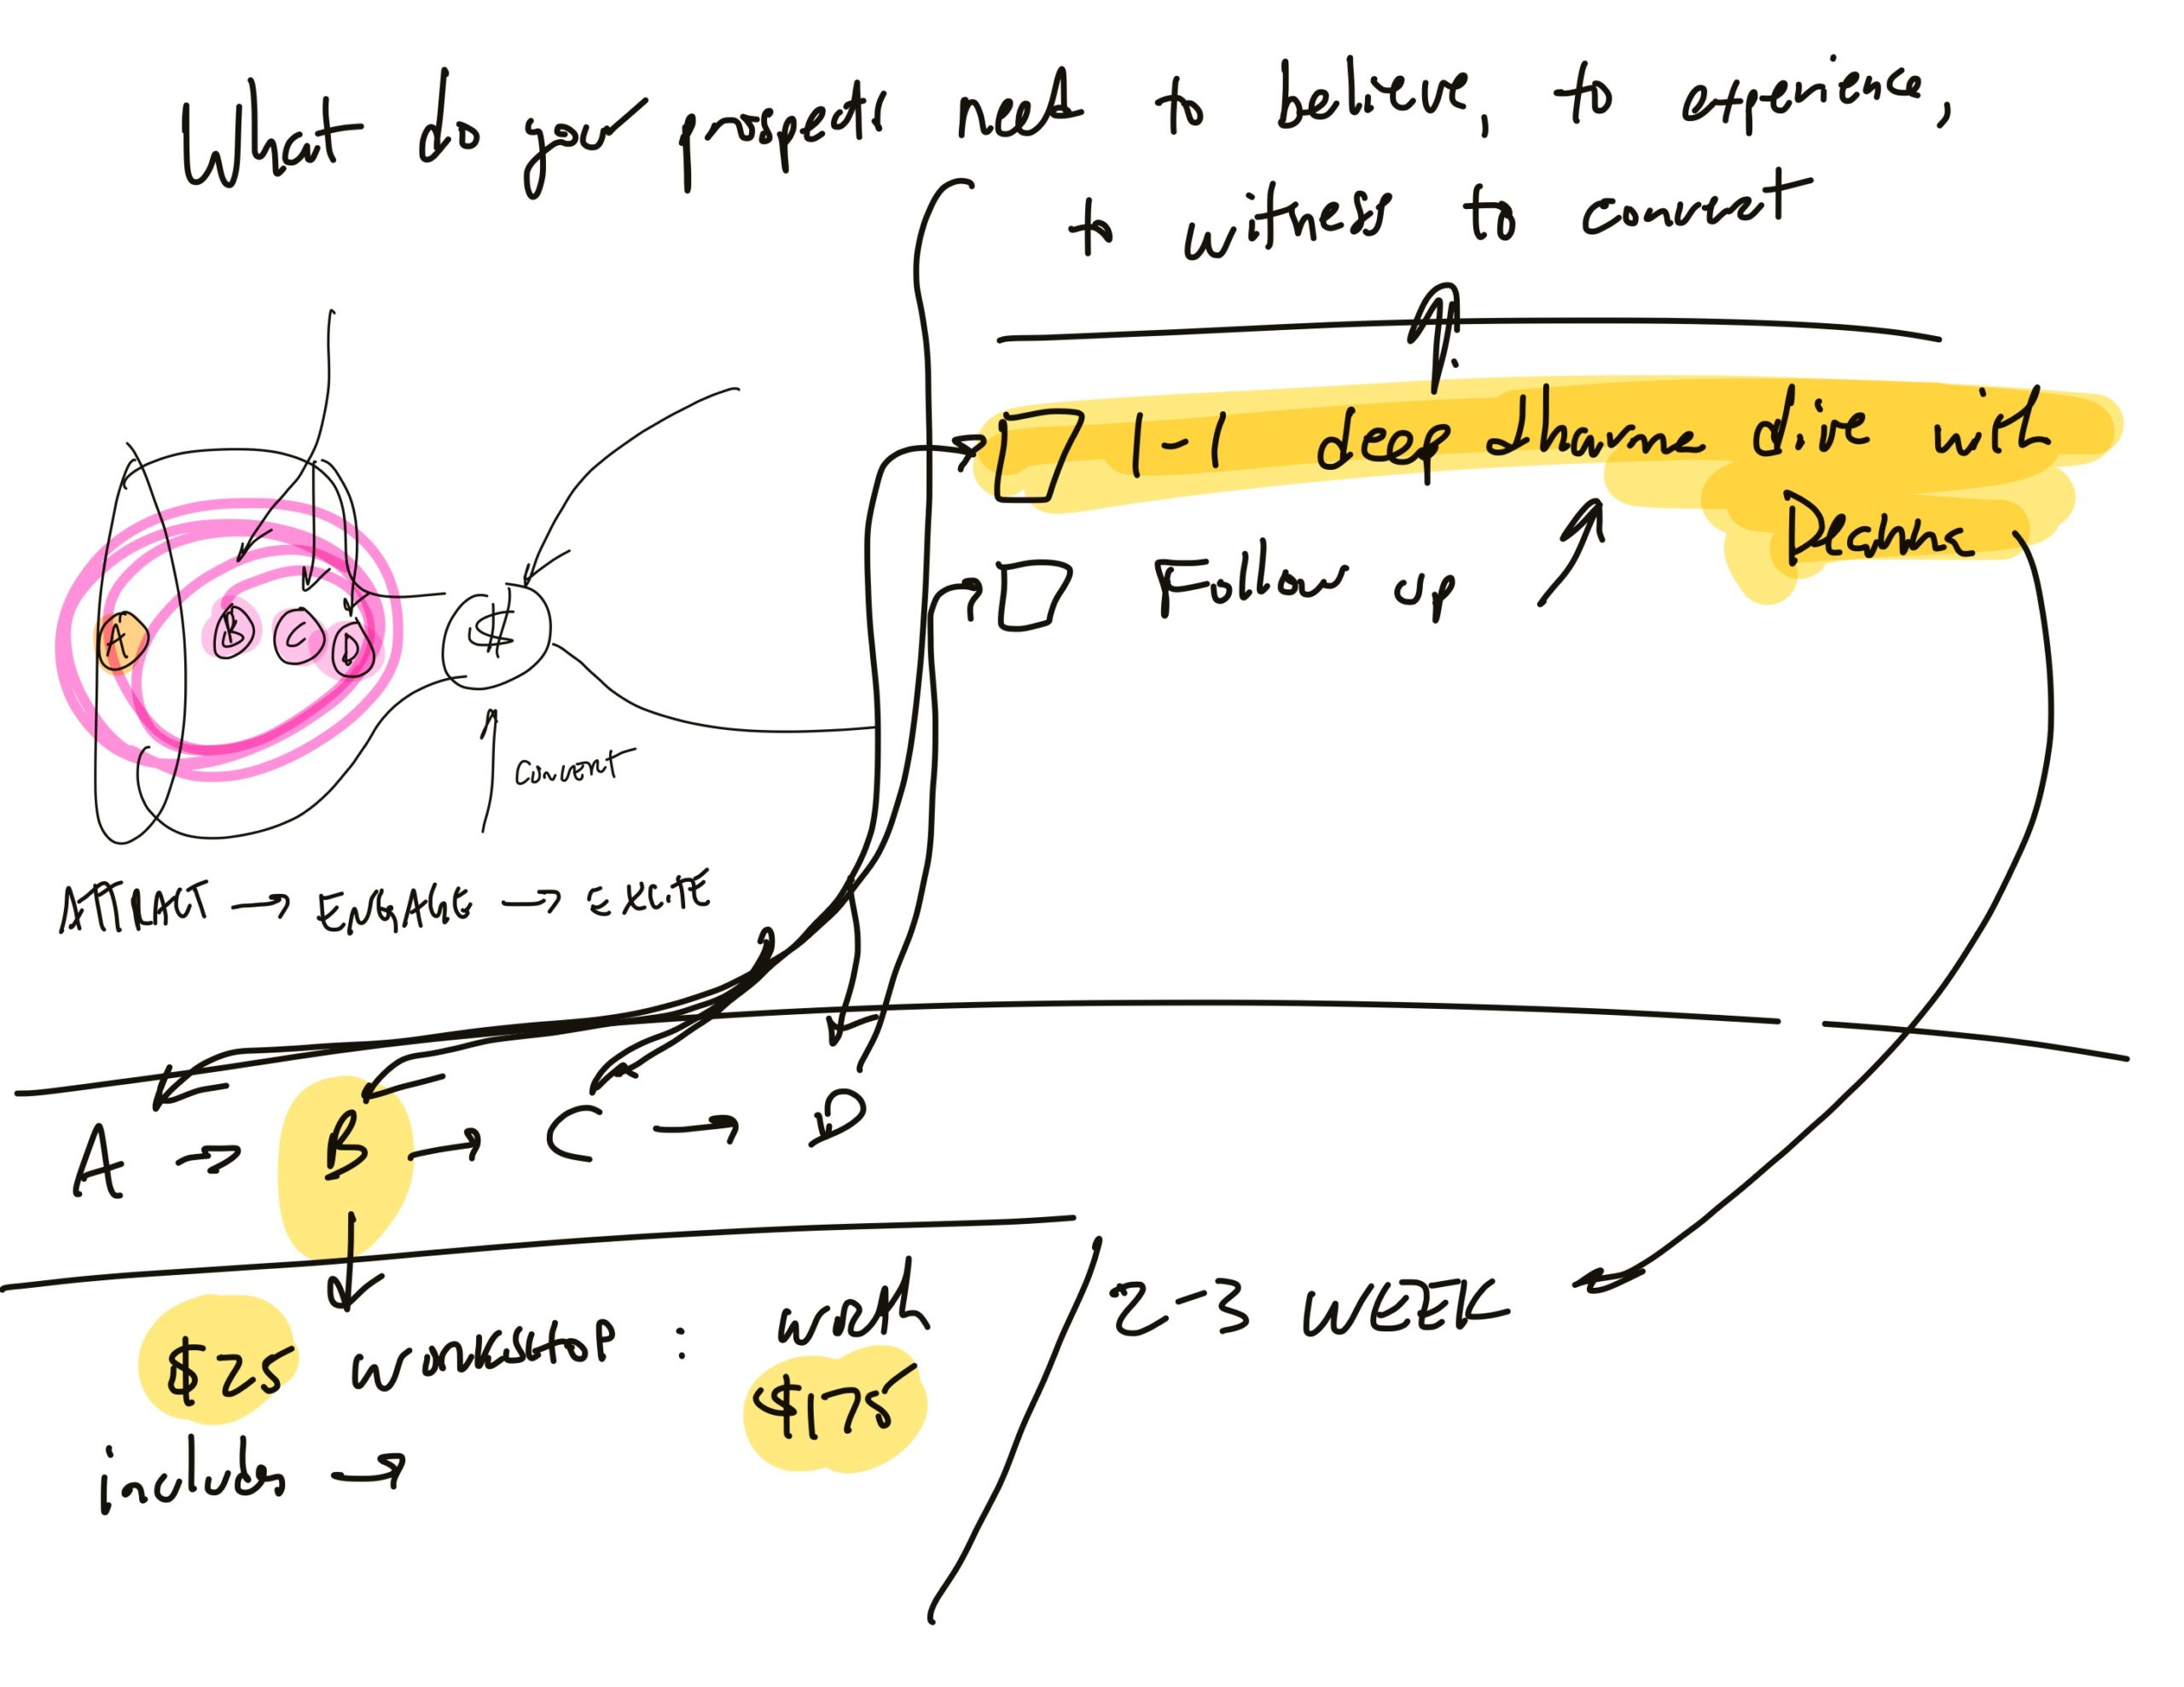 What do your prospects need to believe, to experience,
to witness to convert
1-1 deep dharma dive with
Deanna
Follow up
A
B
C
D
$
Convert
ATTRACT → ENGAGE → EXCITE
A → B → C → D
$25 WORKSHOP : WORTH
$175
includes →
2-3 WEEK